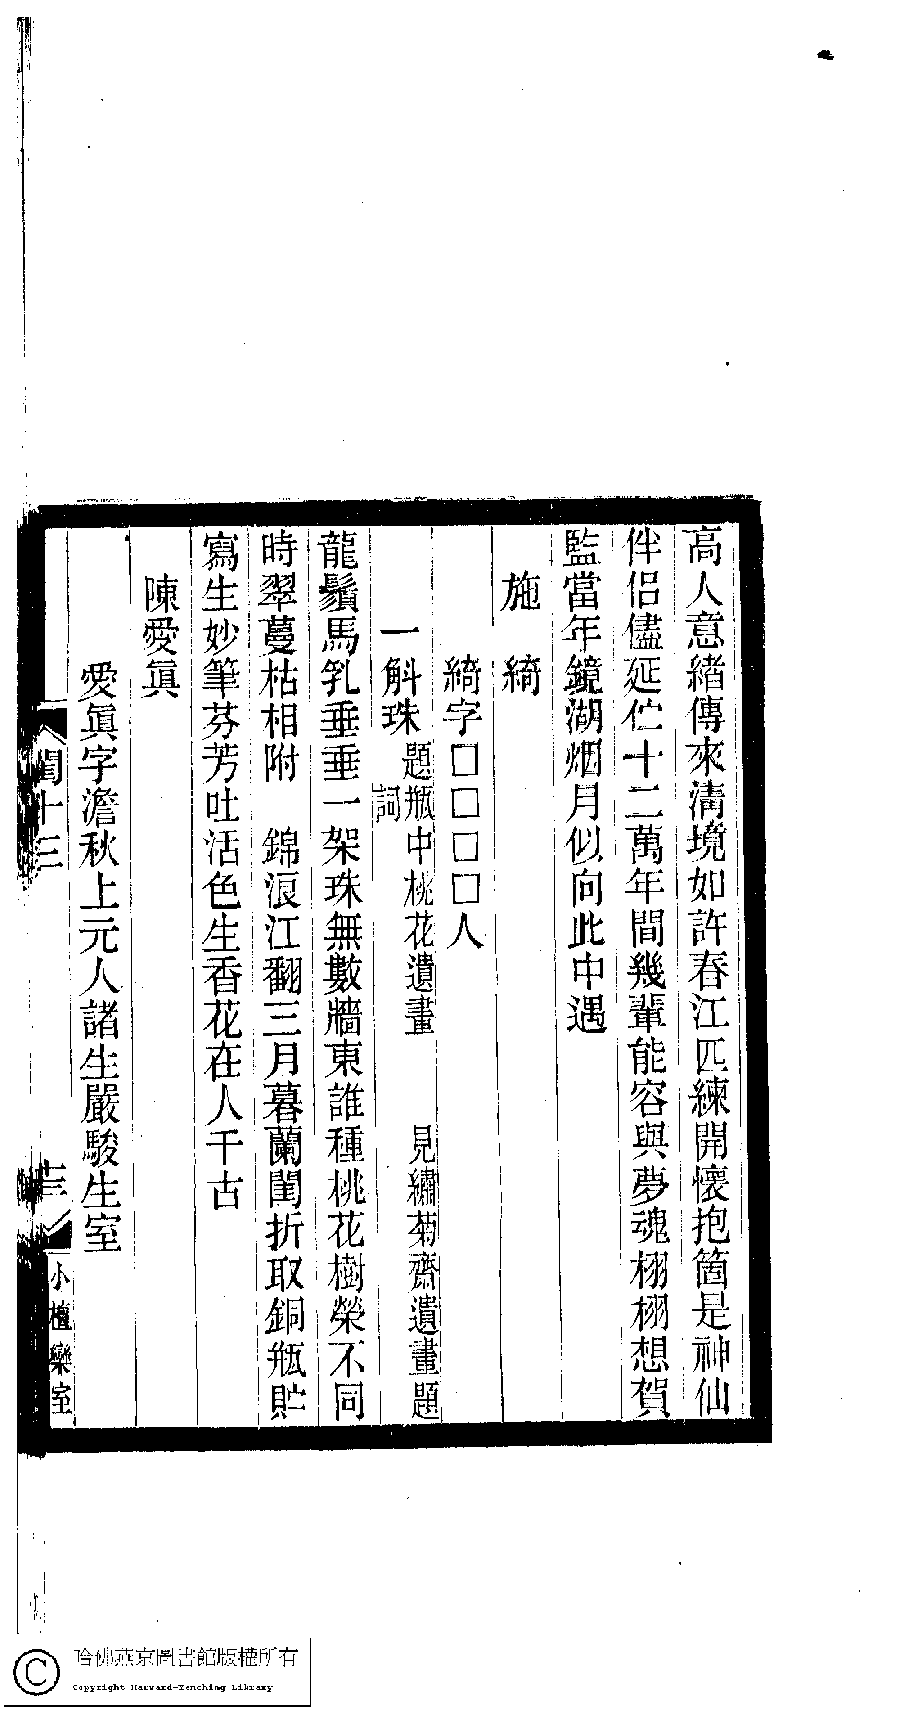 高人意緒傳來淸境如許春江匹練開懷抱箇是神仙
伴侶儘延伫十二萬年間幾輩能容與夢魂栩栩想賀
監當年鏡湖烟月似向此中遇
施　綺
綺字□□□□人
一斛珠題瓶中桃花遺畫　見繡菊齋遺畫題
詞
龍鬚馬乳垂垂一架珠無數牆東誰種桃花樹榮不同
時翠蔓枯相附　錦浪江翻三月暮蘭閨折取銅瓶貯
寫生妙筆芬芳吐活色生香花在人千古
陳愛眞
愛眞字澹秋上元人諸生嚴駿生室
閨十三
小檀欒室
哈佛燕京圖書館版權所有
Copyright Harvard-Yenching Library